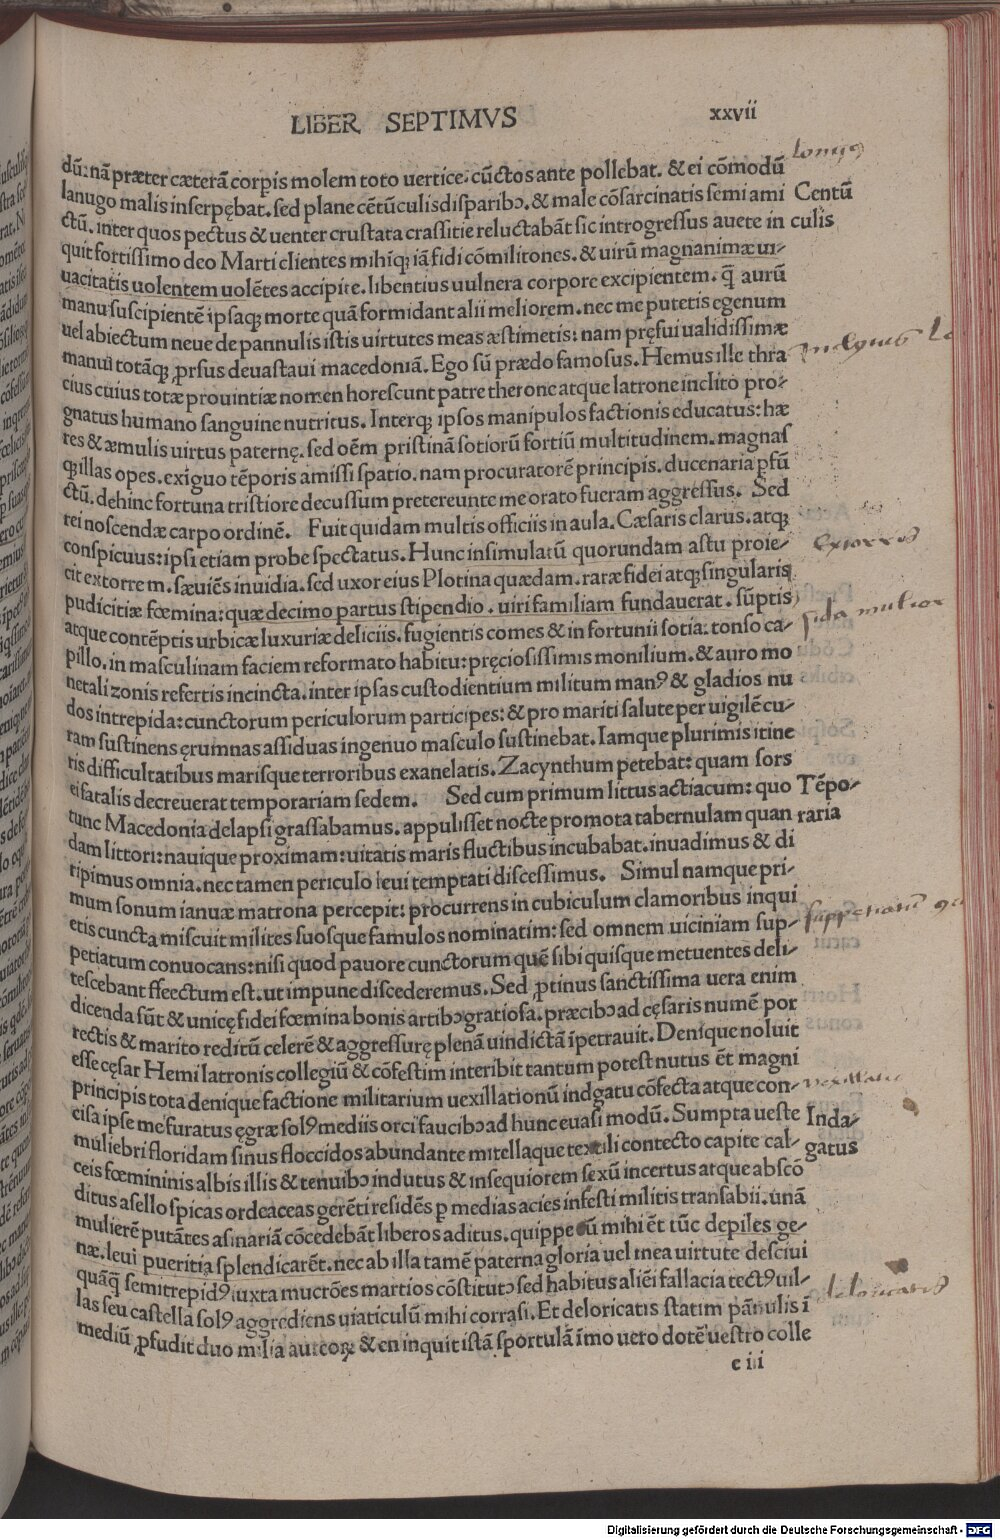 LIBER SEPTIMVS
xxvii
dū: nā præter cæterā corpis molem toto uertice. cūctos ante pollebat. & ei cōmodū
lanugo malis inserpębat. sed plane cētūculis disparibꝰ. & male cōsarcinatis semi ami
Centū
ctū. inter quos pectus & uenter crustata crassitie reluctabāt sic introgressus auete in
culis
quit fortissimo deo Marti clientes mihiq; iā fidi cōmilitones. & uirū magnanimæ ui-
uacitatis uolentem uolētes accipite. libentius uulnera corpore excipientem. q̄ aurū
manu suscipientē ipsaq; morte quā formidant alii meliorem. nec me putetis egenum
uel abiectum neue de pannulis istis uirtutes meas æstimetis: nam pręfui ualidissimæ
manui totāq; ꝓrsus deuastaui macedoniā. Ego sū prædo famosus. Hemus ille thra
cius cuius totæ prouintiæ nomen horescunt patre therone atque latrone inclito pro-
gnatus humano sanguine nutritus. Interq; ipsos manipulos factionis educatus: hæ
res & æmulis uirtus paternę. sed oēm pristinā sotiorū fortiū multitudinem. magnas
q; illas opes. exiguo tēporis amissi spatio. nam procuratorē principis. ducenaria pfū
ctū. dehinc fortuna tristiore decussum pretereunte me orato fueram aggressus. Sed
rei noscendæ carpo ordinē. Fuit quidam multis officiis in aula. Cæsaris clarus. atq;
conspicuus: ipsi etiam probe spectatus. Hunc insimulatū quorundam astu proie-
extorris
cit extorrem. sæuiēs inuidia. sed uxor eius Plotina quædam. raræ fidei atq; singularis
pudicitiæ fœmina: quæ decimo partus stipendio. uiri familiam fundauerat. sūptis
fida mulier
atque contēptis urbicæ luxuriæ deliciis. fugientis comes & infortunii sotia: tonso ca-
pillo. in masculinam faciem reformato habitu: pręciosissimis monilium. & auro mo
netali zonis refertis incincta. inter ipsas custodientium militum manꝰ & gladios nu
dos intrepida: cunctorum periculorum participes: & pro mariti salute per uigilē cu-
ram sustinens ęrumnas assiduas ingenuo masculo sustinebat. Iamque plurimis itine
ris difficultatibus marisque terroribus exanelatis. Zacynthum petebat: quam sors
ei fatalis decreuerat temporariam sedem. Sed cum primum littus actiacum: quo
Tēpo-
tunc Macedonia delapsi grassabamus. appulisset nocte promota tabernulam quan
raria
dam littori: nauique proximam: uitatis maris fluctibus incubabat. inuadimus & di
ripimus omnia. nec tamen periculo leui temptati discessimus. Simul namque pri-
mum sonum ianuæ matrona percepit: procurrens in cubiculum clamoribus inqui
etis cuncta miscuit milites suosque famulos nominatim: sed omnem uiciniam sup-
petiatum conuocans: nisi quod pauore cunctorum quē sibi quisque metuentes deli-
tescebant ffeectum est. ut impune discederemus. Sed ꝓtinus sanctissima uera enim
dicenda sūt & unicę fidei fœmina bonis artibꝰ gratiosa. præcibꝰ ad cęsaris numē por
rectis & marito reditū celerē & aggressurę plenā uindictā īpetrauit. Denique noluit
esse cęsar Hemi latronis collegiū & cōfestim interibit tantum potest nutus ēt magni
principis tota denique factione militarium uexillationū indgatu cōfecta atque con-
cisa ipse me furatus ęgræ solꝰ mediis orci faucibꝰ ad hunc euasi modū. Sumpta ueste
Inda-
muliebri floridam sinus floccidos abundante mitellaque textili contecto capite cal-
gatus
ceis fœmininis albis illis & tenuibꝰ indutus & insequiorem sexū incertus atque abscō
ditus asello spicas ordeaceas gerēti residēs p medias acies infesti militis transabii. unā
mulierē putātes asinariā cōcedebāt liberos aditus. quippe cū mihi ēt tūc depiles ge-
næ. leui pueritia splendicarēt. nec ab illa tamē paterna gloria uel mea uirtute desciui
quāq̄ semitrepidꝰ iuxta mucrōes martios cōstitutꝰ sed habitus aliēi fallacia tectꝰ uil-
las seu castella solꝰ aggrediens uiaticulū mihi corrasi. Et deloricatis statim pānulis ī
deloricatis
mediū ꝓfudit duo milia aureoꝝ & en inquit istā sportulā īmo uero dotē uestro colle
e iii
Digitalisierung gefördert durch die Deutsche Forschungsgemeinschaft - DFG